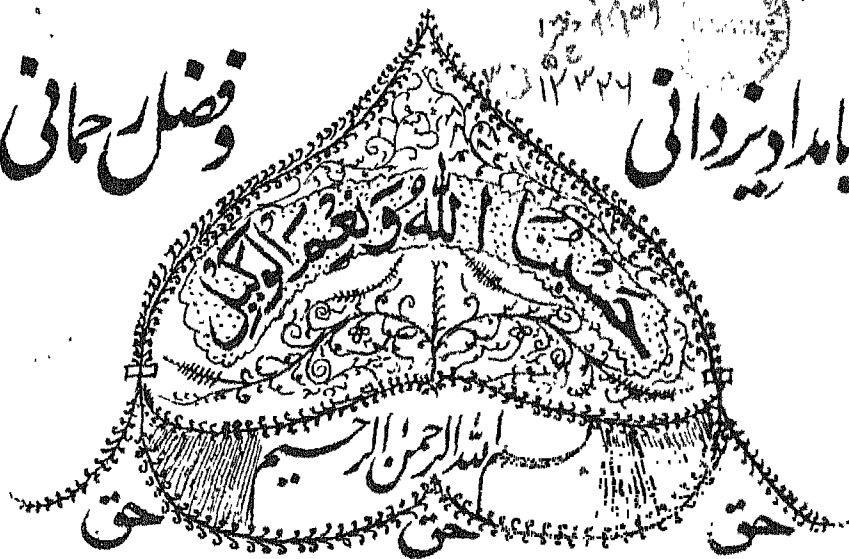 بامداد یزدانی
و فضل رحمانی
حسبنا الله ونعم الوکیل
بسم الله الرحمن الرحیم
حق حق حق